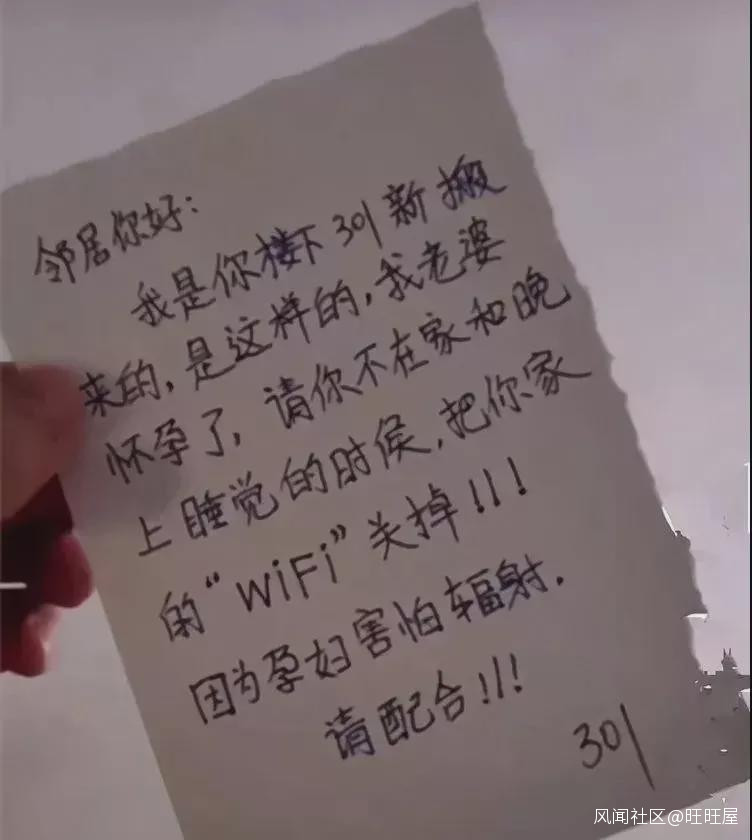 邻居你好：
我是你楼下301新搬
来的，是这样的，我老婆
怀孕了，请你不在家和晚
上睡觉的时侯，把你家
的“WiFi”关掉！！！
因为孕妇害怕辐射．
请配合！！！
301
风闻社区@旺旺屋